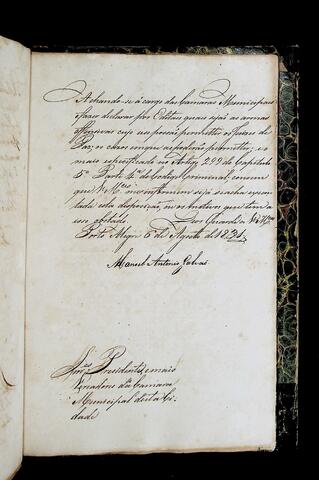 Achando-se á cargo das Camaras Municipaes
fazer declarar por Editaes quaes sejão as armas
offensivas cujo uso possão permittir os Juizes de
Paz, os casos em que as poderão permittir, e o
mais especificado no Artigo 299 do Capitulo
5º Parte 4ª do Codigo Criminal; convem
que V. Mces me informem se já se acha execu-
tada esta disposição, ou os motivos que tem a
isso obstado. Deos Guarde a V. Mces
Porto Alegre 6 de Agosto de 1831.
Manoel Antonio Galvão
Snres Presidente, e mais
Vereadores da Camara
Municipal desta Ci-
dade